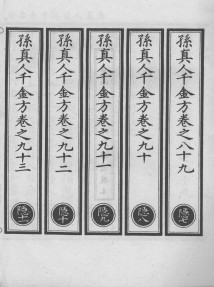 孫真人千金方卷之八十九
隐七
孫真人千金方卷之九十
隐八
孫真人千金方卷之九十一
隐九
孫真人千金方卷之九十二
隐十
孫真人千金方卷之九十三
隐十一